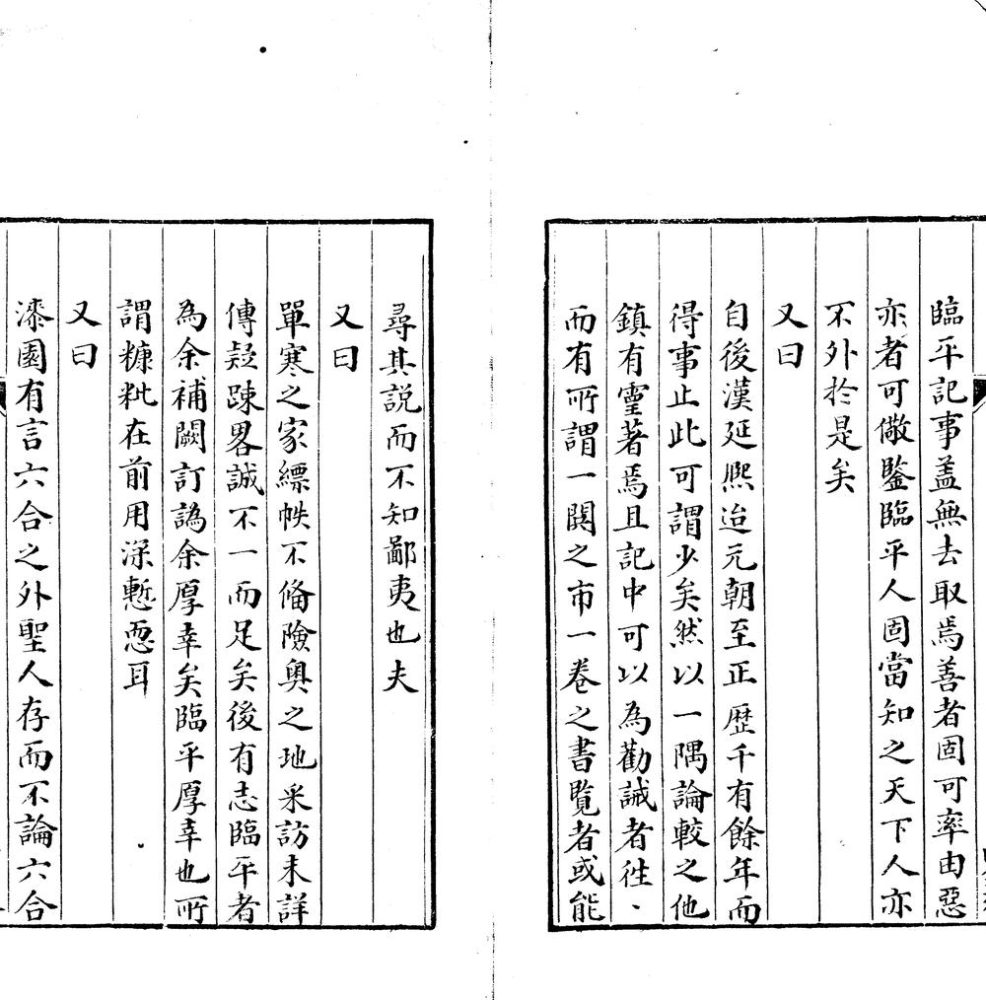 臨平記事蓋無去取焉善者固可率由惡
亦者可儆鑒臨平人固當知之天下人亦
不外於是矣
又曰
自後漢延熈迨元朝至正歴千有餘年而
得事止此可謂少矣然以一隅論較之他
鎮有靈著焉且記中可以為勸誡者徃、
而有所謂一閧之市一卷之書覧者或能
尋其説而不知鄙夷也夫
又曰
單寒之家縹帙不俻險奥之地采訪未詳
傳疑踈畧誠不一而足矣後有志臨平者
為余補闕訂譌余厚幸矣臨平厚幸也所
謂糠粃在前用深慙恧耳
又曰
漆園有言六合之外聖人存而不論六合